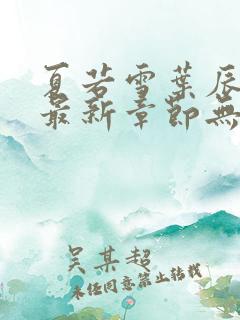 夏若雪葉辰
最新章節無
吴某超
未经同意禁止转载